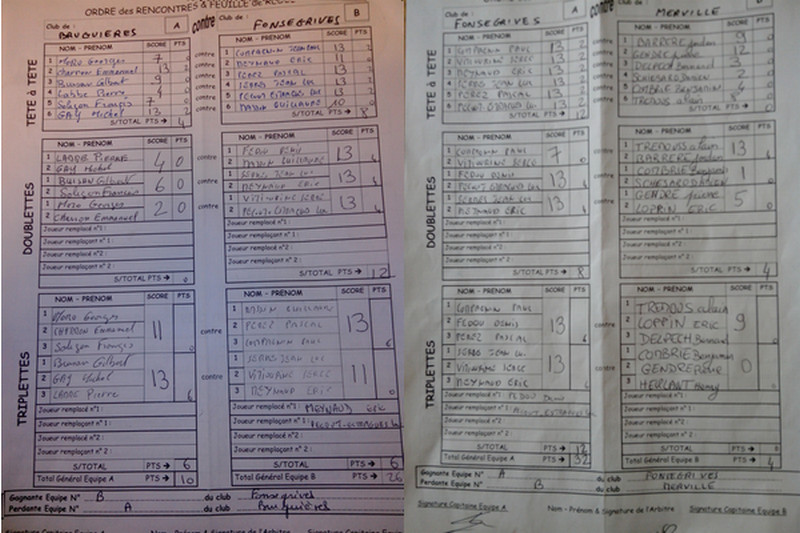 ORDRE des RENCONTRES & FEUILLE de
Club de : A contre Club de : B
BRUGUIERES FONSEGRIVES
TÊTE à TÊTE
NOM - PRENOM SCORE PTS NOM - PRENOM SCORE PTS
1 Moro Georges 7 0 contre 1 COMPAGNIN JEAN 13 2
2 Charron Emmanuel 13 2 contre 2 MEYNAUD ERIC 11 0
3 Buisan Gilbert 9 0 contre 3 PEREZ PASCAL 13 2
4 Labbe Pierre 4 0 contre 4 SERRES JEAN LUC 13 2
5 Salaçon François 7 0 contre 5
6 GAY Michel 13 2 contre 6 MASSON GUILLAUME 10 0
S/TOTAL PTS → 4 S/TOTAL PTS → 8
DOUBLETTES
NOM - PRENOM SCORE PTS NOM - PRENOM SCORE PTS
1 LABBE PIERRE 4 0 contre 1 FEDOU DENIS 13
2 GAY Michel 2 MASSON GUILLAUME
1 BUISAN Gilbert 6 0 contre 1 SERRES JEAN LUC 13
2 Salaçon Francois 2 MEYNAUD ERIC
1 Moro Georges 2 0 contre 1 13
2 Charron Emmanuel 2
Joueur remplacé n°1 : Joueur remplacé n°1 :
Joueur remplaçant n°1 : Joueur remplaçant n°1 :
Joueur remplacé n°2 : Joueur remplacé n°2 :
Joueur remplaçant n°2 : Joueur remplaçant n°2 :
S/TOTAL PTS → 0 S/TOTAL PTS → 12
TRIPLETTES
NOM - PRENOM SCORE PTS NOM - PRENOM SCORE PTS
1 Moro Georges 11 contre 1 MASSON GUILLAUME 13
2 CHARRON Emmanuel 2 PEREZ PASCAL
3 Salaçon François 0 3 COMPAGNIN PAUL 6
1 Buisan Gilbert 13 contre 1 SERRES JEAN LUC 11
2 GAY Michel 2
3 LABBE Pierre 6 3 MEYNAUD ERIC 0
Joueur remplacé n°1 : Joueur remplacé n°1 : MEYNAUD ERIC
Joueur remplaçant n°1 : Joueur remplaçant n°1 :
Joueur remplacé n°2 : Joueur remplacé n°2 :
Joueur remplaçant n°2 : Joueur remplaçant n°2 :
S/TOTAL PTS → 6 S/TOTAL PTS → 6
Total Général Equipe A PTS → 10 Total Général Equipe B PTS → 26
Gagnante Equipe N° B du club Fonsegrives
Perdante Equipe N° A du club Bruguières
Signature Capitaine Equipe A Nom - Prénom & Signature de l'Arbitre Signature Capitaine
Club de : A contre Club de :
FONSEGRIVES MERVILLE
TÊTE à TÊTE
NOM - PRENOM SCORE PTS NOM - PRENOM SCORE PTS
1 COMPAGNIN PAUL 13 2 1 BARRERE 9 0
2 13 2 2 GENDRE 12 0
3 MEYNAUD ERIC 13 2 3 DELPECH Bernard 3 0
4 FEDOU DENIS 13 2 4 2 0
5 PEREZ PASCAL 13 2 5 COMBRIE Benjamin 4 0
6 13 2 6 TREMOUS alain 8 0
S/TOTAL PTS → 12 S/TOTAL PTS → 0
DOUBLETTES
NOM - PRENOM SCORE PTS NOM - PRENOM SCORE PTS
1 COMPAGNIN PAUL 7 0 1 TREMOUS alain 13
2 2 BARRERE
1 FEDOU DENIS 13 1 COMBRIE Benjamin 1
2 2
1 SERRES JEAN LUC 13 1 GENDRE 5 0
2 MEYNAUD ERIC 2 LOPPIN ERIC
Joueur remplacé n°1 : Joueur remplacé n°1 :
Joueur remplaçant n°1 : Joueur remplaçant n°1 :
Joueur remplacé n°2 : Joueur remplacé n°2 :
Joueur remplaçant n°2 : Joueur remplaçant n°2 :
S/TOTAL PTS → 8 S/TOTAL PTS → 4
TRIPLETTES
NOM - PRENOM SCORE PTS NOM - PRENOM SCORE PTS
1 COMPAGNIN PAUL 13 contre 1 TREMOUS alain 9
2 FEDOU DENIS 2 LOPPIN ERIC
3 PEREZ PASCAL 6 3 DELPECH Bernard
1 SERRES JEAN LUC 13 contre 1 COMBRIE Benjamin 0
2 2 GENDRE
3 MEYNAUD ERIC 3
Joueur remplacé n°1 : FEDOU Joueur remplacé n°1 :
Joueur remplaçant n°1 : Joueur remplaçant n°1 :
Joueur remplacé n°2 : Joueur remplacé n°2 :
Joueur remplaçant n°2 : Joueur remplaçant n°2 :
S/TOTAL PTS → 12 S/TOTAL PTS →
Total Général Equipe A PTS → 32 Total Général Equipe B PTS → 4
Gagnante Equipe N° A du club FONSEGRIVES
Perdante Equipe N° B du club MERVILLE
Signature Capitaine Equipe A Nom - Prénom & Signature de l'Arbitre Signature Capitaine Equipe B